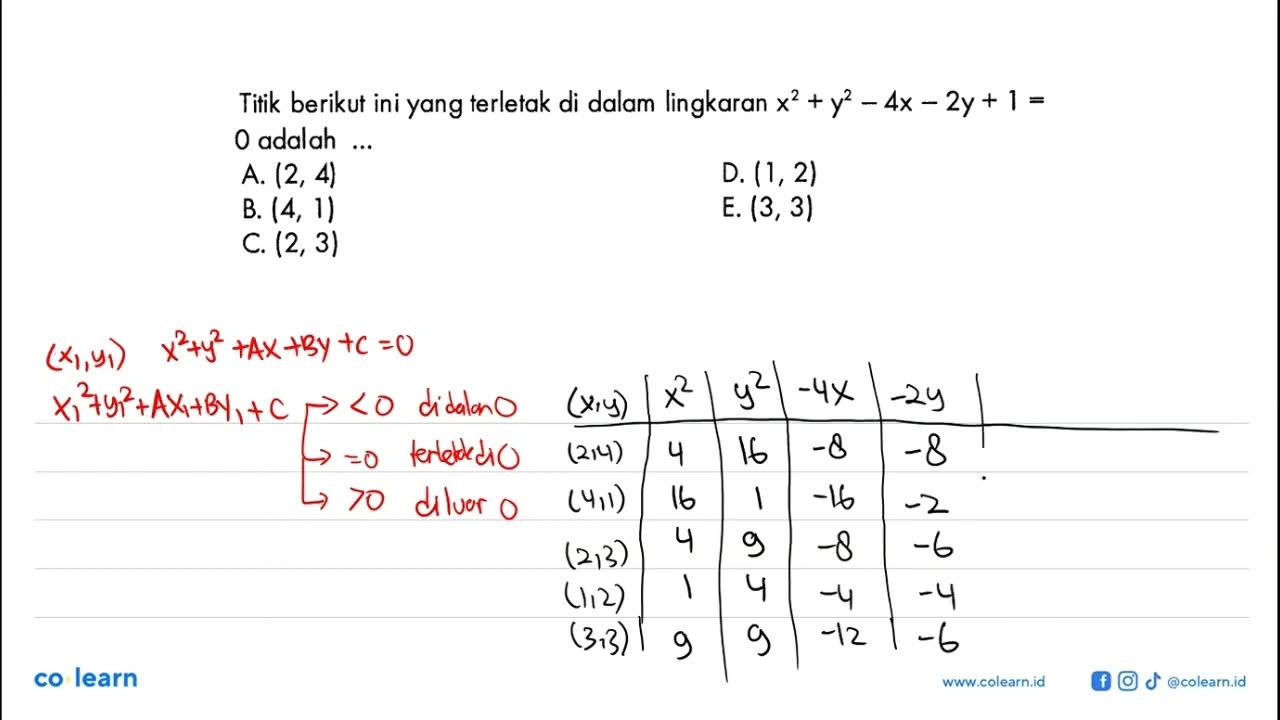 Titik berikut ini yang terletak di dalam lingkaran x² + y² – 4x – 2y + 1 =
0 adalah ...
A. (2, 4)
B. (4, 1)
C. (2, 3)
D. (1, 2)
E. (3, 3)
(x₁, y₁) x²+y²+Ax+By+C=0
x₁²+y₁²+Ax₁+By₁+C → <0 didalam O
→ =0 terletak di O
→ >0 diluar O
(x,y) x² y² -4x -2y
(2,4) 4 16 -8 -8
(4,1) 16 1 -16 -2
(2,3) 4 9 -8 -6
(1,2) 1 4 -4 -4
(3,3) 9 9 -12 -6
co learn
www.colearn.id @colearn.id